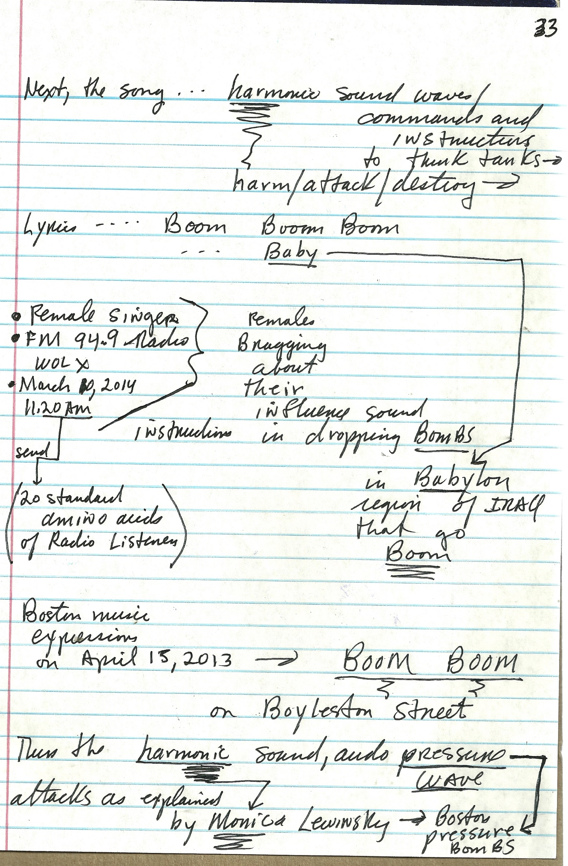 33
Next, the song ... harmonic sound waves/
commands and
instructions
to think tanks→
harm/attack/destroy →
Lyrics .... Boom Booom Boom
... Baby
• Female singer
• FM 94.9 Radio
WOLX
• March 10, 2014
11:20 AM
send
(20 standard
amino acids
of Radio Listener)
Females
Bragging
about
their
influence sound
instructions in dropping BomBS
in Babylon
region of IRAQ
that go
Boom
Boston music
expressions
on April 15, 2013 → BOOM BOOM
on Boyleston Street
Thus the harmonic sound, audo pressure
wave
attacks as explained
by Monica Lewinsky → Boston
pressure
BomBS